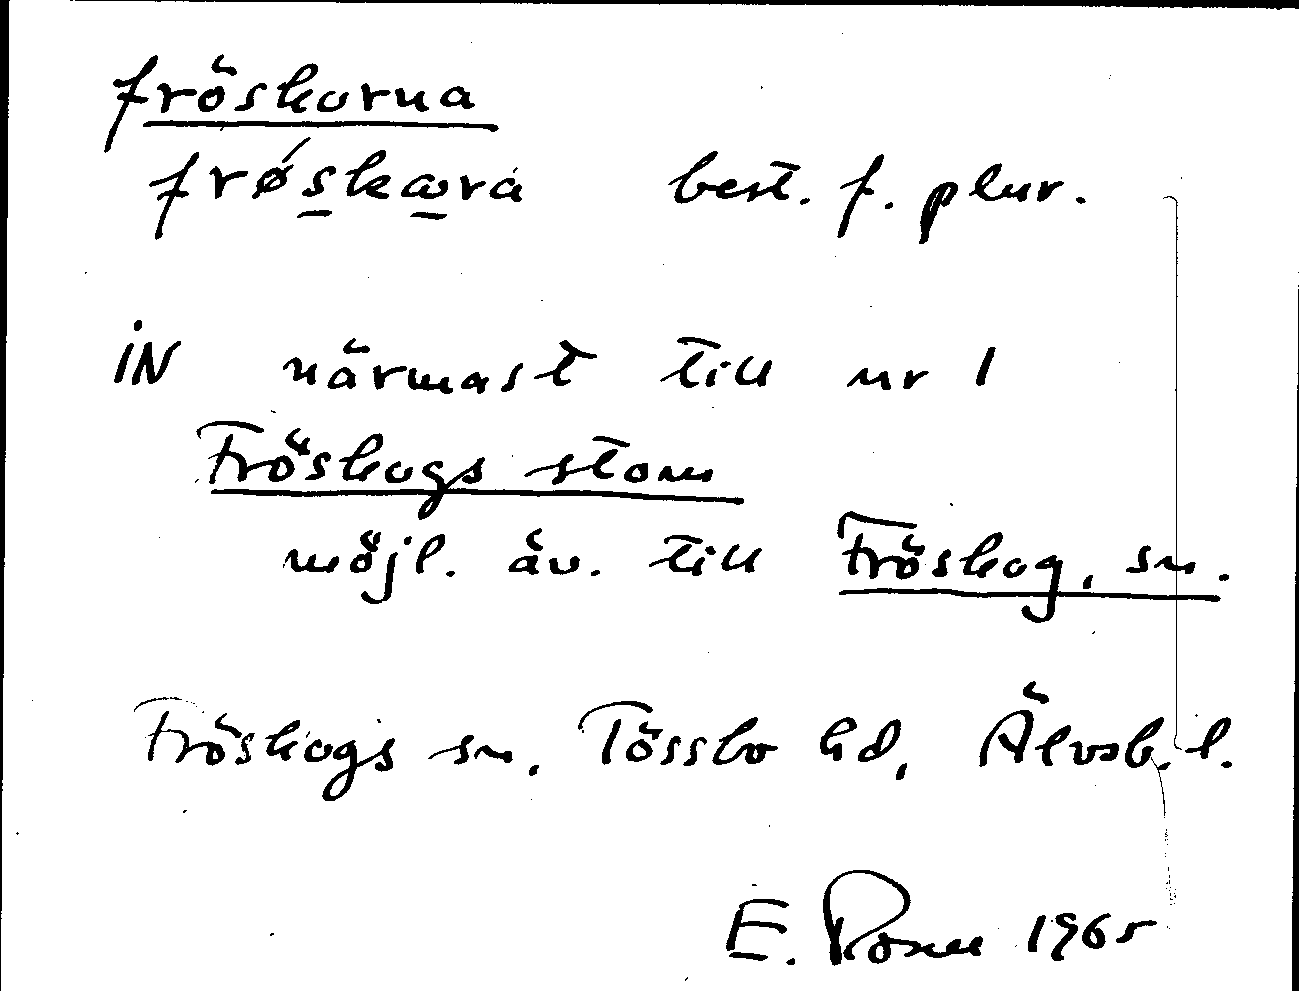 fröskorna
frǿskæra best. f. plur.
IN närmast till nr 1
Fröskogs stom
möjl. äv. till Fröskog, sn.
Fröskogs sn, Tössbo hd, Älvsb. l.
E. Rosen 1965